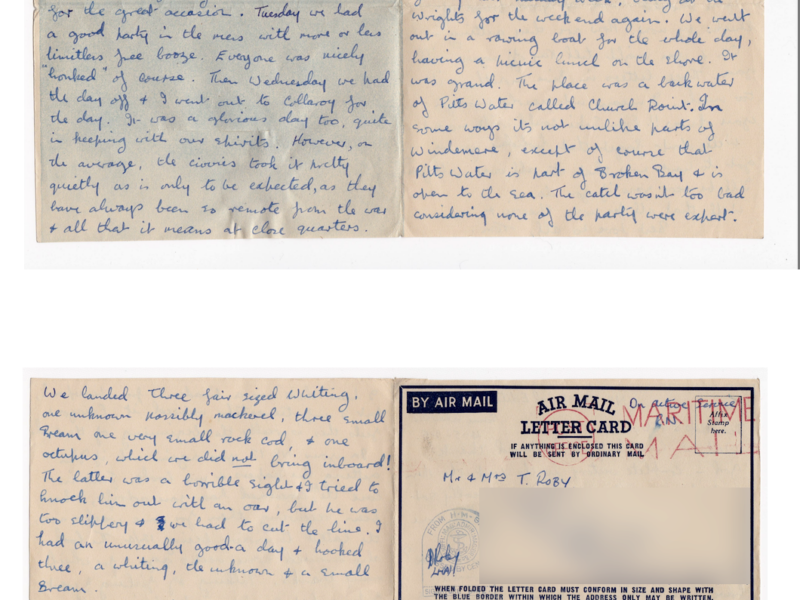 for the great occasion. Tuesday we had
a good party in the mess with more or less
limitless free booze. Everyone was nicely
"honked" of course. Then Wednesday we had
the day off & I went out to Collaroy for
the day. It was a glorious day too, quite
in keeping with our spirits. However, on
the average, the civvies took it pretty
quietly as is only to be expected, as they
have always been so remote from the war
& all that it means at close quarters.
Wrights for the weekend again. We went
out in a rowing boat for the whole day,
having a picnic lunch on the shore. It
was grand. The place was a backwater
of Pitts Water called Church Point. In
some ways its not unlike parts of
Windemere, except of course that
Pitts Water is part of Broken Bay & is
open to the sea. The catch wasn't too bad
considering none of the party were expert.
We landed three fair sized whiting,
one unknown possibly mackerel, three small
bream one very small rock cod, & one
octupus, which we did not bring inboard!
The latter was a horrible sight & I tried to
knock him out with an oar, but he was
too slippery & we had to cut the line. I
had an unusually good a day & hooked
three, a whiting, the unknown & a small
bream.
BY AIR MAIL
AIR MAIL
LETTER CARD
IF ANYTHING IS ENCLOSED THIS CARD
WILL BE SENT BY ORDINARY MAIL.
On active service
MARITIME
MAIL
Affix
Stamp
here.
Mr & Mrs T. ROBY
FROM H.M.
WHEN FOLDED THE LETTER CARD MUST CONFORM IN SIZE AND SHAPE WITH
THE BLUE BORDER WITHIN WHICH THE ADDRESS ONLY MAY BE WRITTEN.